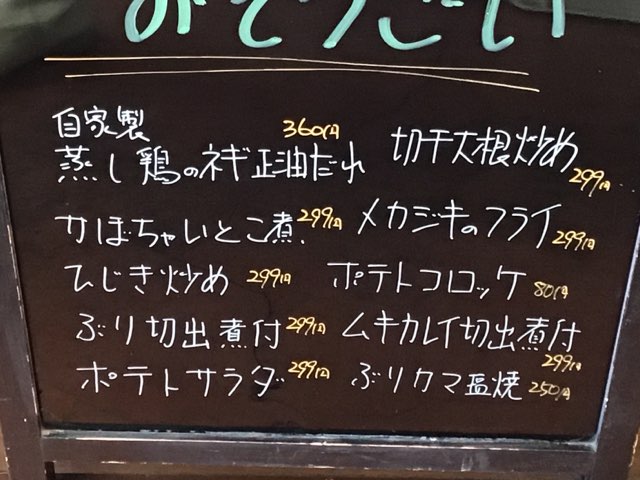 おそうざい
自家製
蒸し鶏のネギ正油だれ 360円
切干大根炒め 299円
かぼちゃいとこ煮. 299円
メカジキのフライ 299円
ひじき炒め 299円
ポテトコロッケ 80円
ぶり切出煮付 299円
ムキカレイ切出煮付 299円
ポテトサラダ 299円
ぶりカマ塩焼 250円